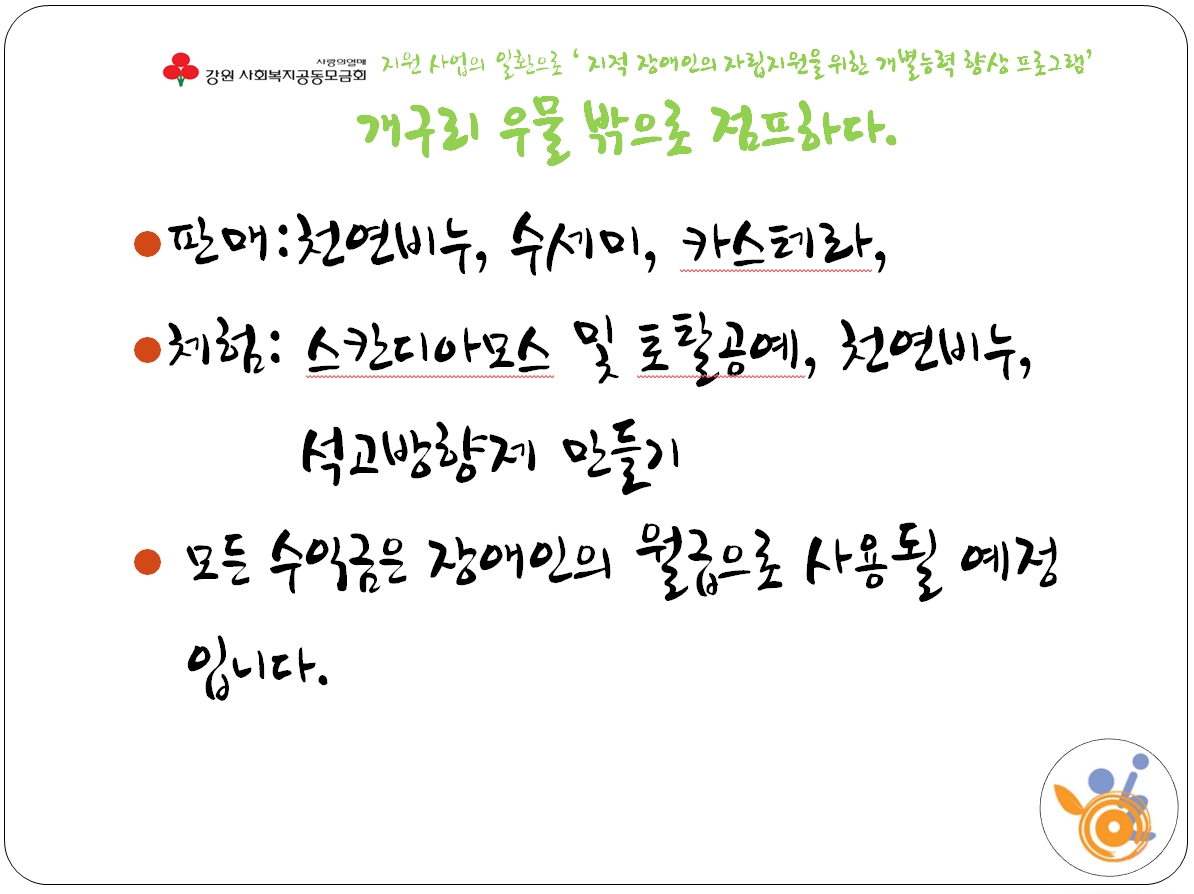 사랑의열매
강원 사회복지공동모금회 지원 사업의 일환으로 ‘ 지적 장애인의 자립지원을 위한 개별능력 향상 프로그램’
개구리 우물 밖으로 점프하다.
판매:천연비누, 수세미, 카스테라,
체험: 스칸디아모스 및 토탈공예, 천연비누,
석고방향제 만들기
모든 수익금은 장애인의 월급으로 사용될 예정
입니다.